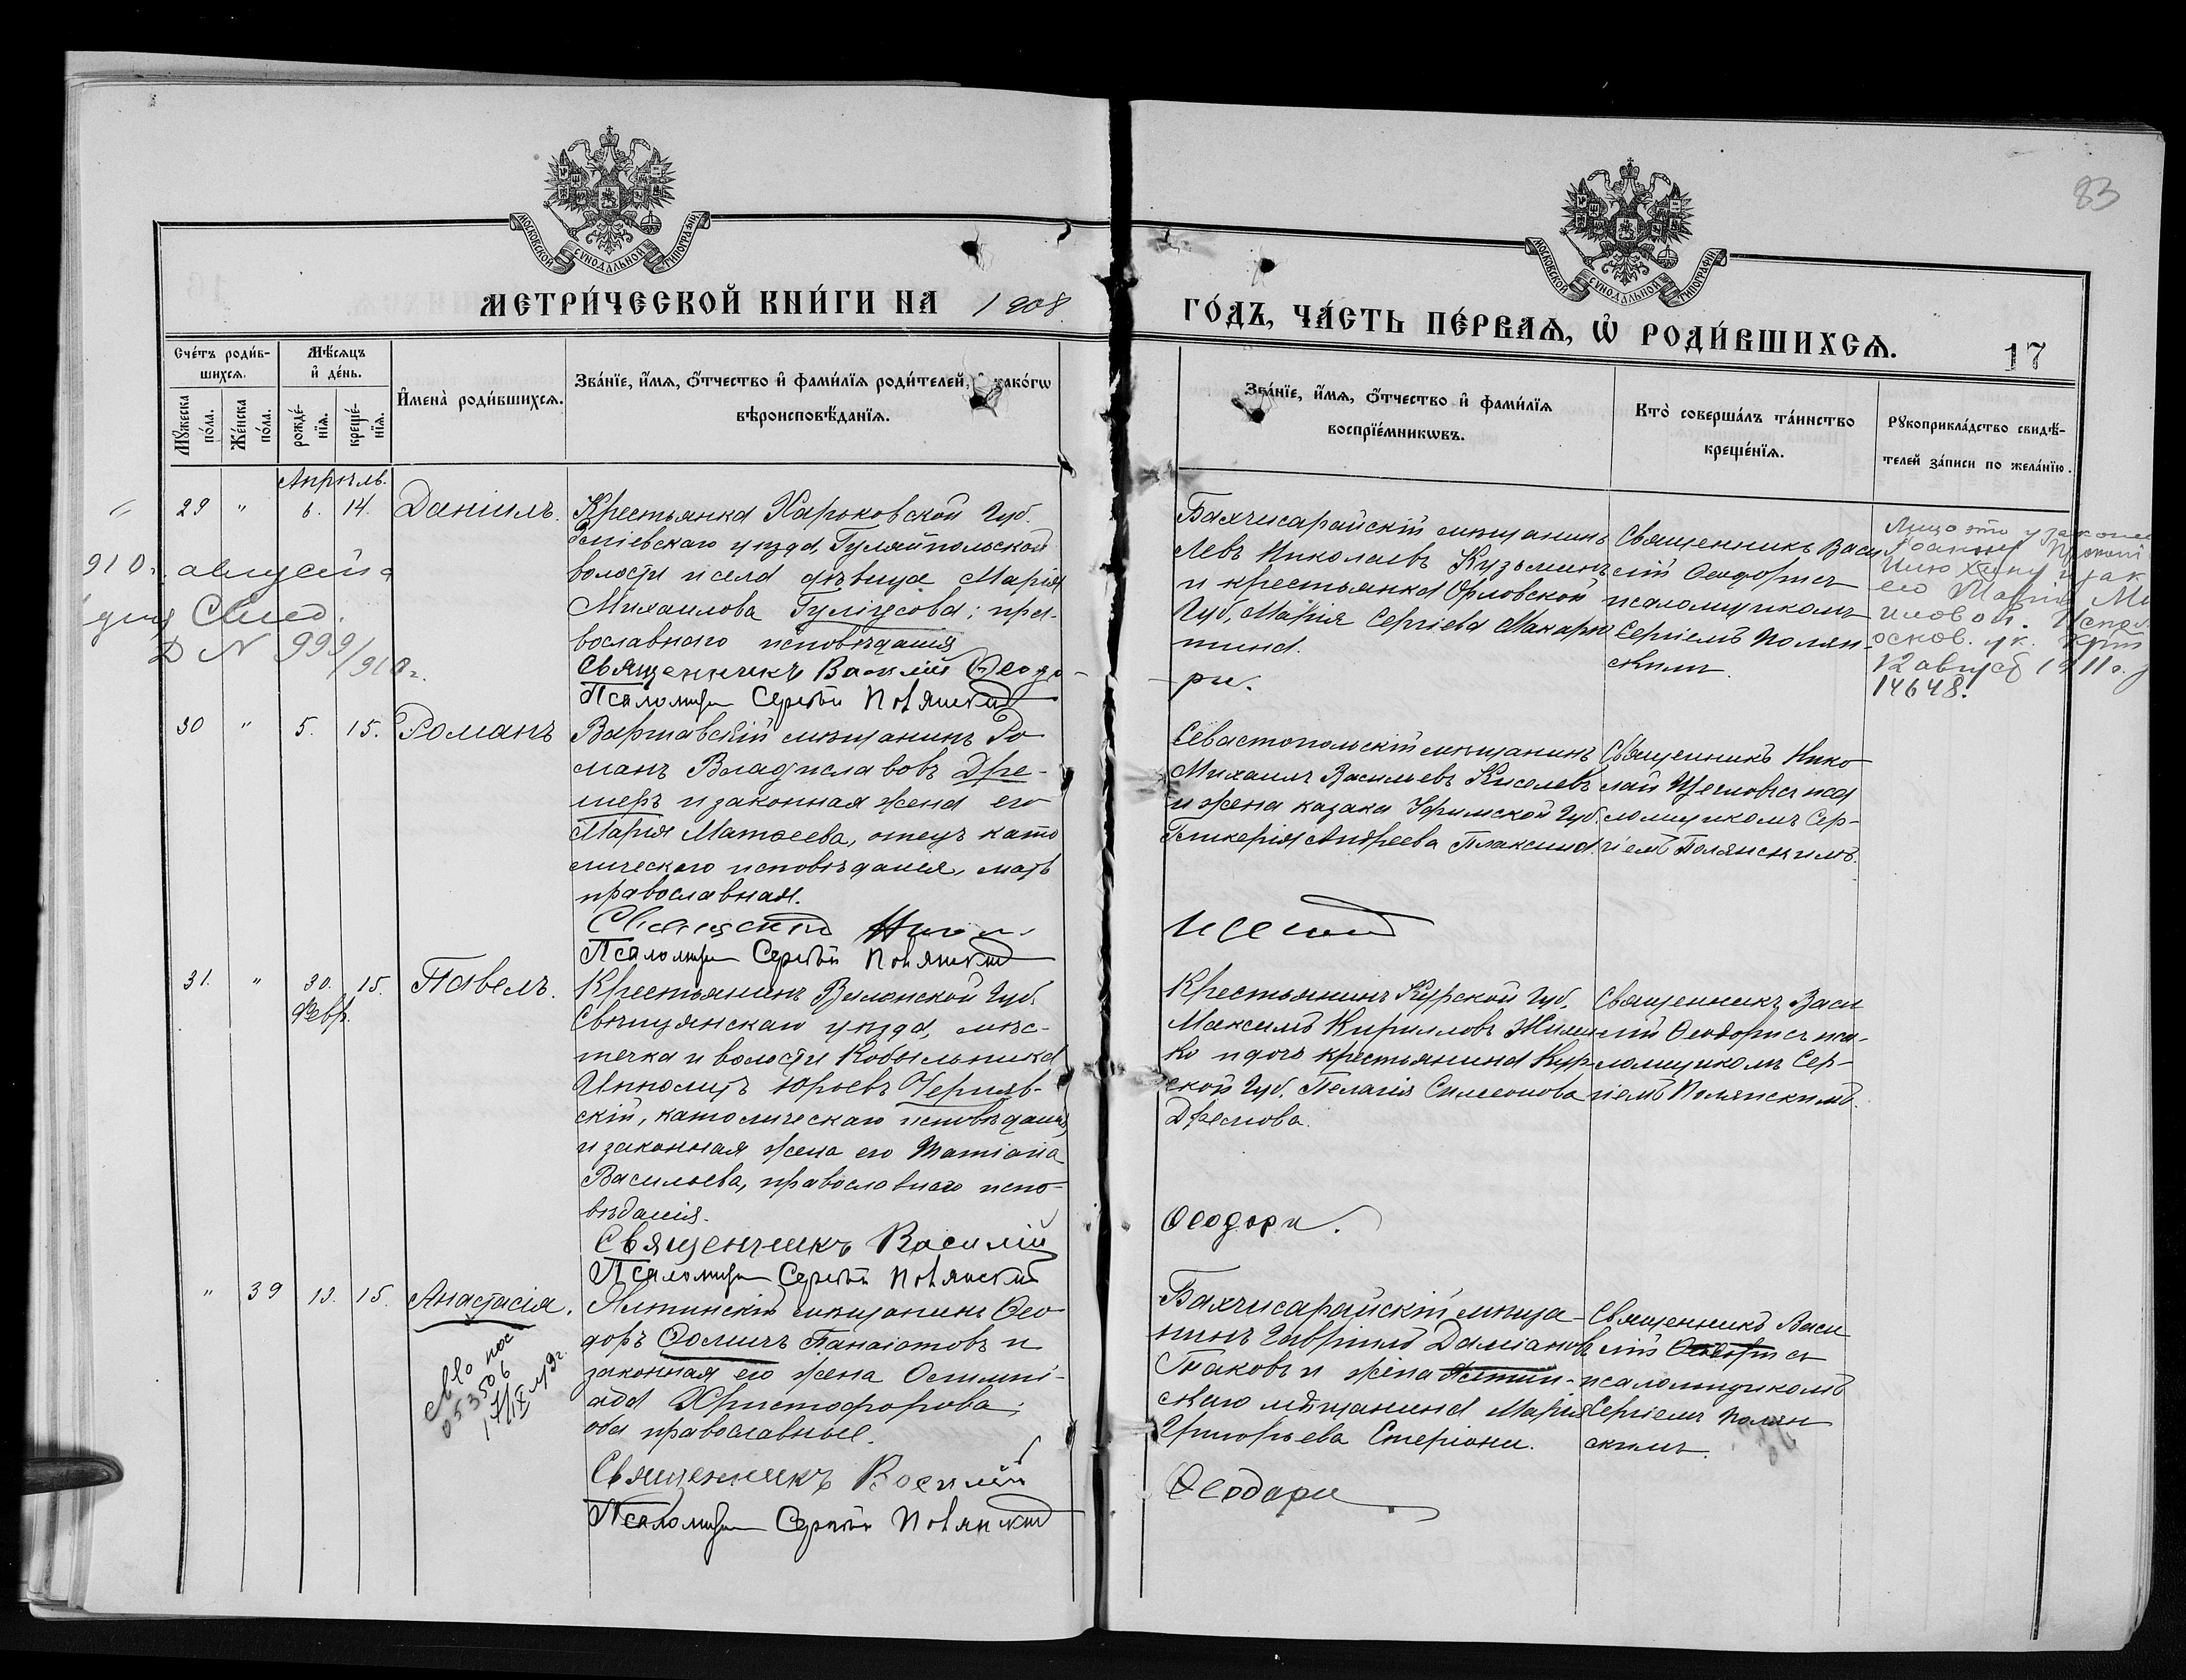 83
МОСКОВСКОЙ СѴНОДАЛЬНОЙ ТИПОГРАФІИ
МОСКОВСКОЙ СѴНОДАЛЬНОЙ ТИПОГРАФІИ
МЕТРИ́ЧЕСКОЙ КНИ́ГИ НА 1908
ГО́ДЪ, ЧА́СТЬ ПЕ́РВАѦ, Ѡ҆ РОДИ́ВШИХСѦ.
17
Сче́тъ роди́в-
шихсѧ.
Мѣ́сѧцъ
и҆ де́нь.
Мꙋ́жеска
по́ла.
Же́нска
по́ла.
рожде́-
нїѧ.
креще́-
нїѧ.
И҆мена̀ роди́вшихсѧ.
Зва́нїе, и҆́мѧ, ѻ҆́тчество и҆ фами́лїѧ роди́телей, како́гѡ
вѣроисповѣ́данїѧ.
Зва́нїе, и҆́мѧ, ѻ҆́тчество и҆ фами́лїѧ
воспрїе́мникѡвъ.
Кто̀ соверша́лъ та́инство
креще́нїѧ.
Рꙋкоприкла́дство свидѣ́-
телей за́писи по жела́нїю.
Апрѣль.
29 " 6. 14. Даніилъ.
Крестьянка Харьковской Губ.
Зміевскаго уѣзда, Гуляйпольской
волости и села дѣвица Марія
Михаилова Гулідова; пра-
вославнаго исповѣданія
Священникъ Василій Ѳеодо-
Псаломщ Сергѣй Полянскій
Бахчисарайскій мѣщанинъ
Левъ Николаевъ Кузьминъ
и крестьянка Орловской
Губ. Марія Сергіева Макарк
тина.
ри.
Священникъ Васи
лій Ѳеодори съ
псаломщикомъ
Сергіемъ Полян-
скимъ.
Лицо это узаконе
его Марія Ми
основ. ук.
12 август 1911 г.
14648.
910 г. августа
дня Свид.
Д N 999/910 г.
30 " 5. 15. Романъ
Варшавскій мѣщанинъ Ро
манъ Владиславовъ Дре-
меръ и законная жена его
Марія Матѳеева, отецъ като
лическаго исповѣданія, мать
православная.
Священникъ Никол.
Псаломщ Сергѣй Полянскій
Севастопольскій мѣщанинъ
Михаилъ Васильевъ Киселевъ
и жена казака Уфимской Губ.
Гликерія Андреева Плаксина.
Священникъ Нико
лай Щегловъ съ пса
ломщикомъ Сер-
гіемъ Полянскимъ.
31. " 30. 15. Павелъ.
Февр.
Крестьянинъ Виленской Губ.
Свѣнцянскаго уѣзда, мѣс-
течка и волости Кобыльника
Ипполитъ Юрьевъ Черняв-
скій, католическаго исповѣданія
и законная жена его Татіана
Васильева, православнаго испо-
вѣданія.
Священникъ Василій
Псаломщ Сергѣй Полянскій
Крестьянинъ Курской Губ.
Максимъ Кирилловъ Жилен
ко и дочь крестьянина Кур-
ской Губ. Пелагія Симеонова
Дремова.
Ѳеодори.
Священникъ Васи
лій Ѳеодори съ пса-
ломщикомъ Сер-
гіемъ Полянскимъ.
" 39 13. 15. Анастасія.
053506
Ялтинскій мѣщанинъ Ѳео
доръ Ѳомичъ Панаіотовъ и
законная его жена Олимпі-
ада Христофорова;
оба православные.
Священникъ Василій
Псаломщ Сергѣй Полянскій
Бахчисарайскій мѣща-
нинъ Гавріилъ Даміановъ
Спаковъ и жена Ялтин-
скаго мѣщанина Марія
Григорьева Стеріони.
Ѳеодори
Священникъ Васи
лій Ѳеодори съ
псаломщикомъ
Сергіемъ Полян
скимъ.